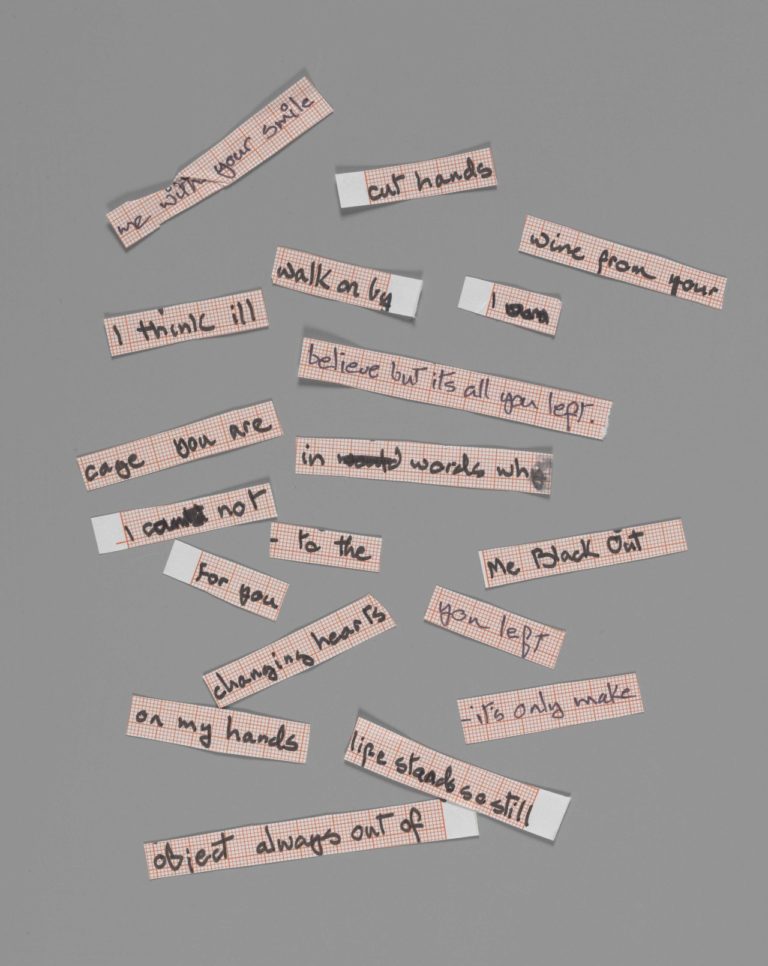 me with your smile
cut hands
wine from your
walk on by
I
I think ill
believe but it's all you left.
cage you are
in words wh
I not
- to the
Me Black Out
for you
you left
changing hearts
- it's only make
on my hands
life stands so still
object always out of